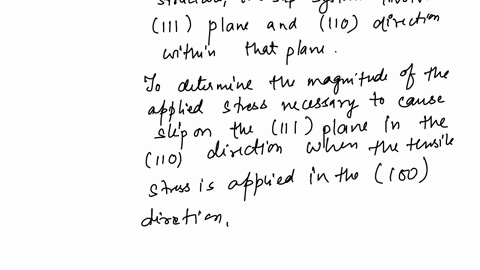 (111) plane and (110) direction
within that plane.
To determine the magnitude of the
applied stress necessary to cause
slip on the (111) plane in the
(110) direction when the tensile
stress is applied in the (100)
diretion.